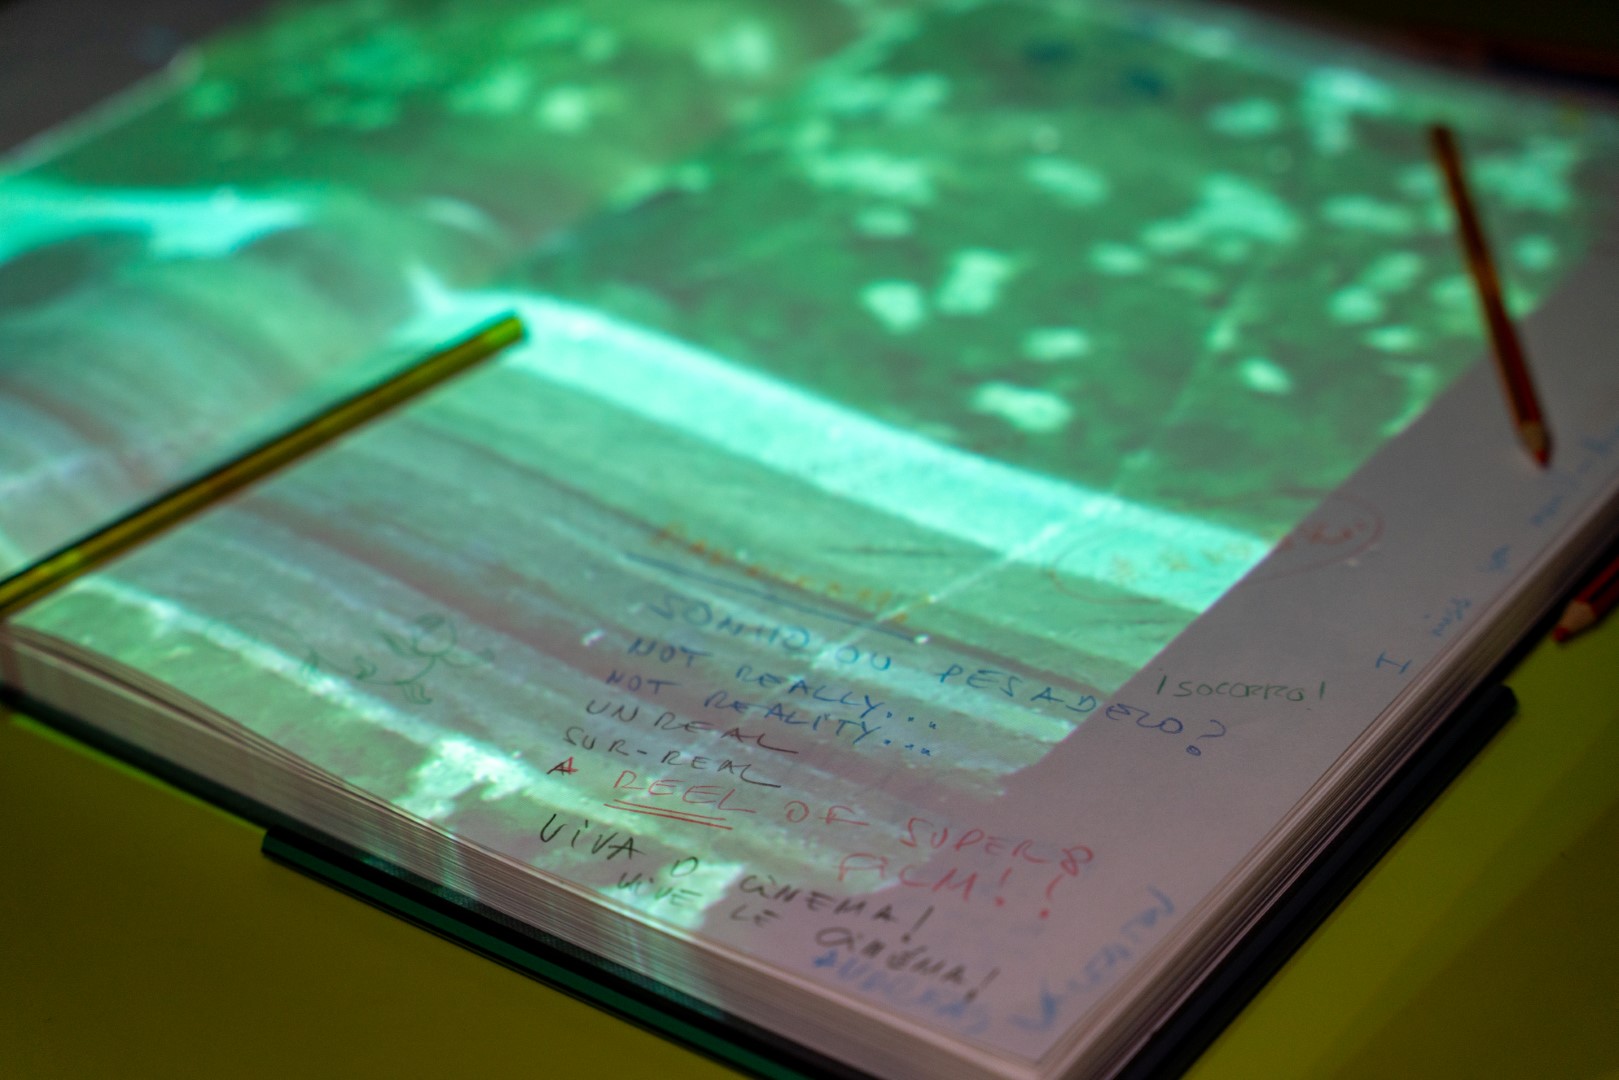 SONHO OU PESADELO?
NOT REALLY...
NOT REALITY...
UNREAL
SUR-REAL
A REEL OF SUPER 8
FILM!!
VIVA O CINEMA!
VIVE LE CINÉMA!
¡SOCORRO!
I miss